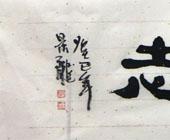 志
癸巳年
景龍